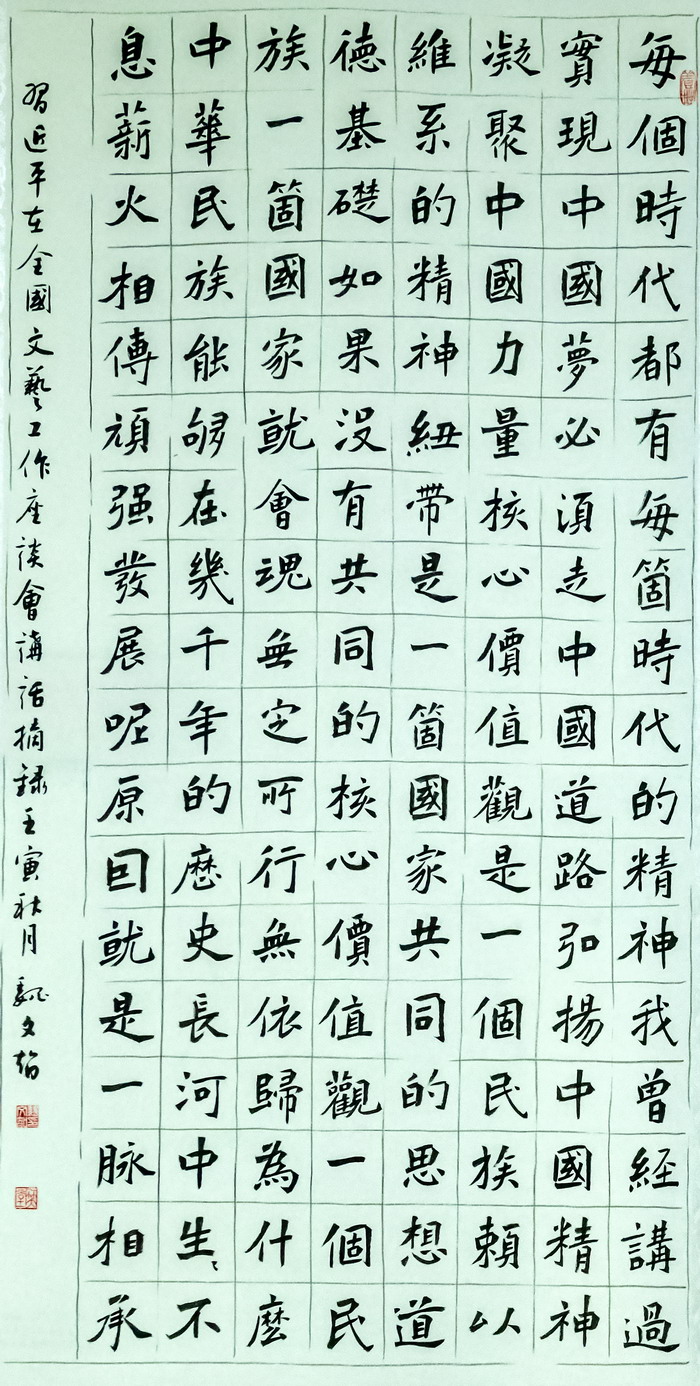 每個時代都有每箇時代的精神我曾經講過
實現中國夢必須走中國道路弘揚中國精神
凝聚中國力量核心價值觀是一個民族賴以
維系的精神紐帶是一箇國家共同的思想道
德基礎如果沒有共同的核心價值觀一個民
族一箇國家就會魂無定所行無依歸為什麼
中華民族能够在幾千年的厯史長河中生〻不
息薪火相傳頑强發展呢原囙就是一脉相承
習近平在全國文藝工作座談會講話摘録壬寅秋月